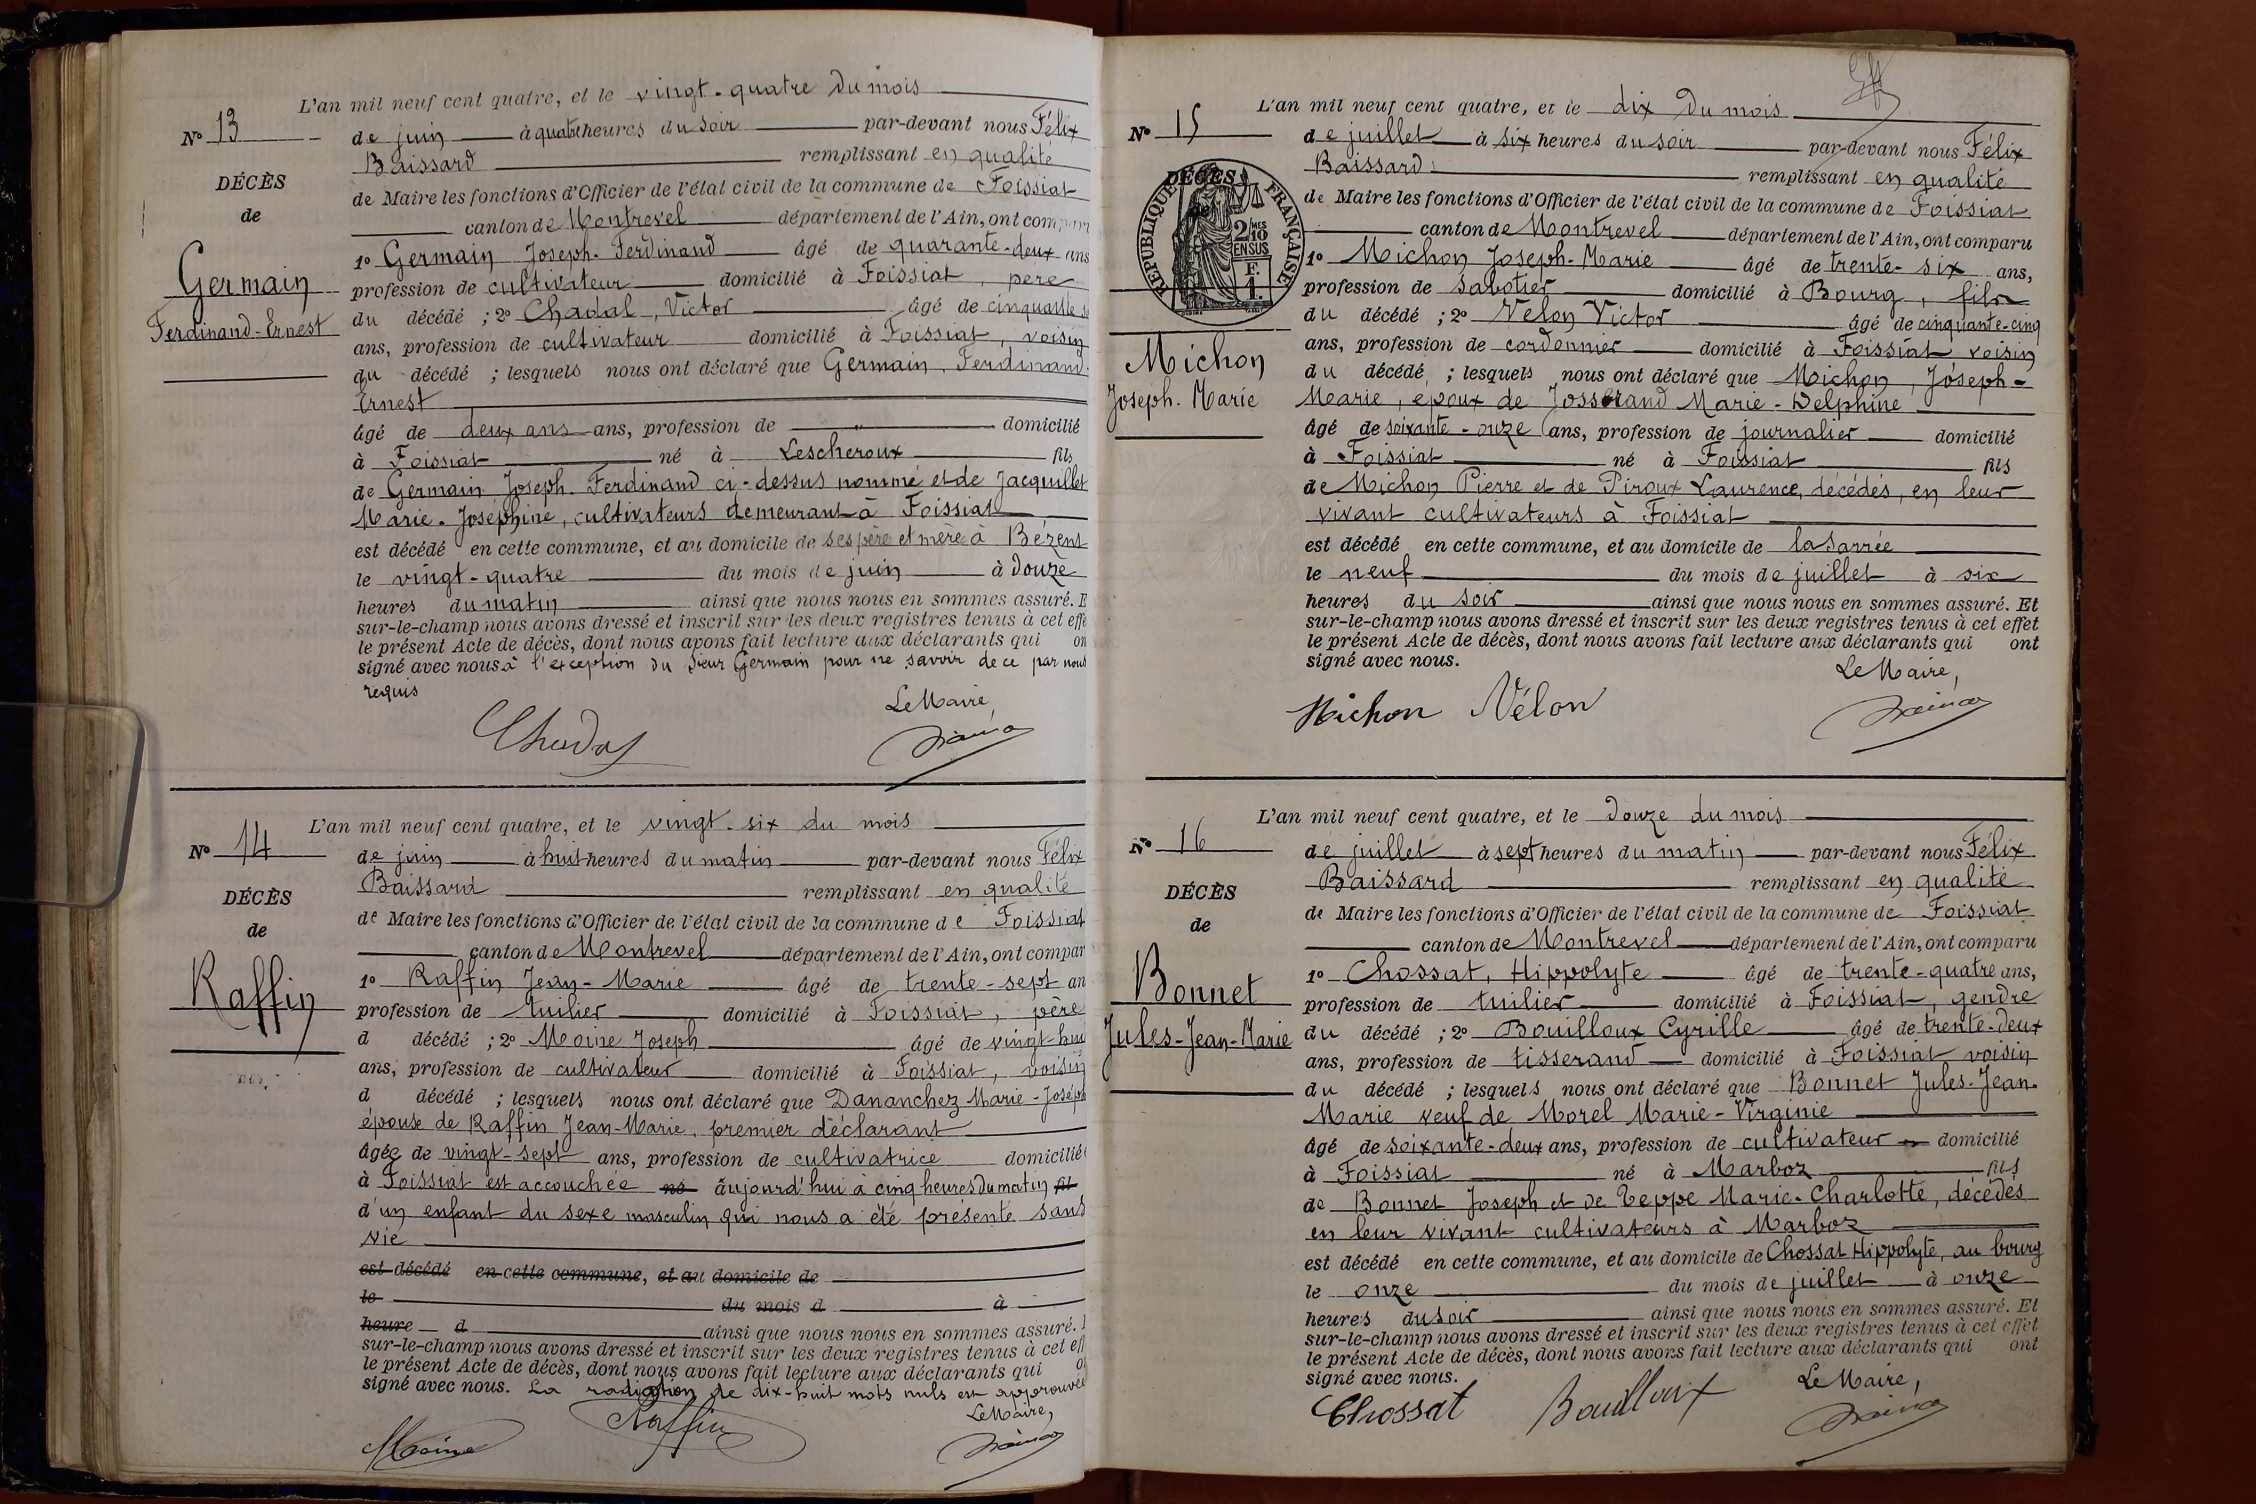 L'an mil neuf cent quatre, et le vingt-quatre du mois
N° 13
de juin à quatre heures du soir par-devant nous Félix
Baissard remplissant en qualité
DÉCÈS
de Maire les fonctions d'Officier de l'état civil de la commune de Foissiat
de
canton de Montrevel département de l'Ain, ont comparu
1° Germain Joseph-Ferdinand âgé de quarante-deux ans
Germain
profession de cultivateur domicilié à Foissiat, père
du décédé ; 2° Chadal, Victor âgé de cinquante
Ferdinand-Ernest
ans, profession de cultivateur domicilié à Foissiat, voisin
du décédé ; lesquels nous ont déclaré que Germain, Ferdinand
Ernest
âgé de deux ans ans, profession de " domicilié
à Foissiat né à Lescheroux fils
de Germain Joseph-Ferdinand ci-dessus nommé et de Jacquillet
Marie-Joséphine, cultivateurs demeurant à Foissiat
est décédé en cette commune, et au domicile de ses père et mère à Bézent
le vingt-quatre du mois de juin à douze
heures du matin ainsi que nous nous en sommes assuré. E
sur-le-champ nous avons dressé et inscrit sur les deux registres tenus à cet effe
le présent Acte de décès, dont nous avons fait lecture aux déclarants qui on
signé avec nous à l'exception du sieur Germain pour ne savoir de ce par nous
requis
Le Maire,
Chadal
L'an mil neuf cent quatre, et le vingt-six du mois
N° 14
de juin à huit heures du matin par-devant nous Félix
Baissard remplissant en qualité
DÉCÈS
de Maire les fonctions d'Officier de l'état civil de la commune de Foissiat
de
canton de Montrevel département de l'Ain, ont compar
1° Raffin Jean-Marie âgé de trente-sept an
Raffin
profession de tuilier domicilié à Foissiat, père
d décédé ; 2° Moine Joseph âgé de vingt-hui
ans, profession de cultivateur domicilié à Foissiat, voisin
d décédé ; lesquels nous ont déclaré que Dananchez Marie-Joséph
épouse de Raffin Jean-Marie, premier déclarant
âgée de vingt-sept ans, profession de cultivatrice domicilié
à Foissiat est accouchée né aujourd'hui à cinq heures du matin fil
d'un enfant du sexe masculin qui nous a été présenté sans
vie
est décédé en cette commune, et au domicile de
le du mois d à
heure d ainsi que nous nous en sommes assuré.
sur-le-champ nous avons dressé et inscrit sur les deux registres tenus à cet eff
le présent Acte de décès, dont nous avons fait lecture aux déclarants qui o
signé avec nous. La radiation de dix-huit mots nuls est approuvée
Le Maire,
Moine Raffin
L'an mil neuf cent quatre, et le dix du mois
N° 15
de juillet à six heures du soir par-devant nous Félix
Baissard remplissant en qualité
DÉCÈS
de Maire les fonctions d'Officier de l'état civil de la commune de Foissiat
de
RÉPUBLIQUE FRANÇAISE
2/10 MES
EN SUS
F.
1.
canton de Montrevel département de l'Ain, ont comparu
1° Michon Joseph-Marie âgé de trente-six ans,
profession de sabotier domicilié à Bourg, fils
du décédé ; 2° Velon Victor âgé de cinquante-cinq
ans, profession de cordonnier domicilié à Foissiat voisin
Michon
du décédé ; lesquels nous ont déclaré que Michon, Joseph-
Joseph-Marie
Marie, époux de Josserand Marie-Delphine
âgé de soixante-onze ans, profession de journalier domicilié
à Foissiat né à Foissiat fils
de Michon Pierre et de Piroux Laurence, décédés, en leur
vivant cultivateurs à Foissiat
est décédé en cette commune, et au domicile de la Sarrée
le neuf du mois de juillet à six
heures du soir ainsi que nous nous en sommes assuré. Et
sur-le-champ nous avons dressé et inscrit sur les deux registres tenus à cet effet
le présent Acte de décès, dont nous avons fait lecture aux déclarants qui ont
signé avec nous.
Le Maire,
Michon Vélon
L'an mil neuf cent quatre, et le douze du mois
N° 16
de juillet à sept heures du matin par-devant nous Félix
Baissard remplissant en qualité
DÉCÈS
de Maire les fonctions d'Officier de l'état civil de la commune de Foissiat
de
canton de Montrevel département de l'Ain, ont comparu
1° Chossat, Hippolyte âgé de trente-quatre ans,
Bonnet
profession de tuilier domicilié à Foissiat, gendre
Jules-Jean-Marie
du décédé ; 2° Bouilloux Cyrille âgé de trente-deux
ans, profession de tisserand domicilié à Foissiat voisin
du décédé ; lesquels nous ont déclaré que Bonnet Jules-Jean-
Marie veuf de Morel Marie-Virginie
âgé de soixante-deux ans, profession de cultivateur domicilié
à Foissiat né à Marboz fils
de Bonnet Joseph et de Teppe Marie-Charlotte, décédés
en leur vivant cultivateurs à Marboz
est décédé en cette commune, et au domicile de Chossat Hippolyte, au bourg
le onze du mois de juillet à onze
heures du soir ainsi que nous nous en sommes assuré. Et
sur-le-champ nous avons dressé et inscrit sur les deux registres tenus à cet effet
le présent Acte de décès, dont nous avons fait lecture aux déclarants qui ont
signé avec nous.
Le Maire,
Chossat Bouilloux